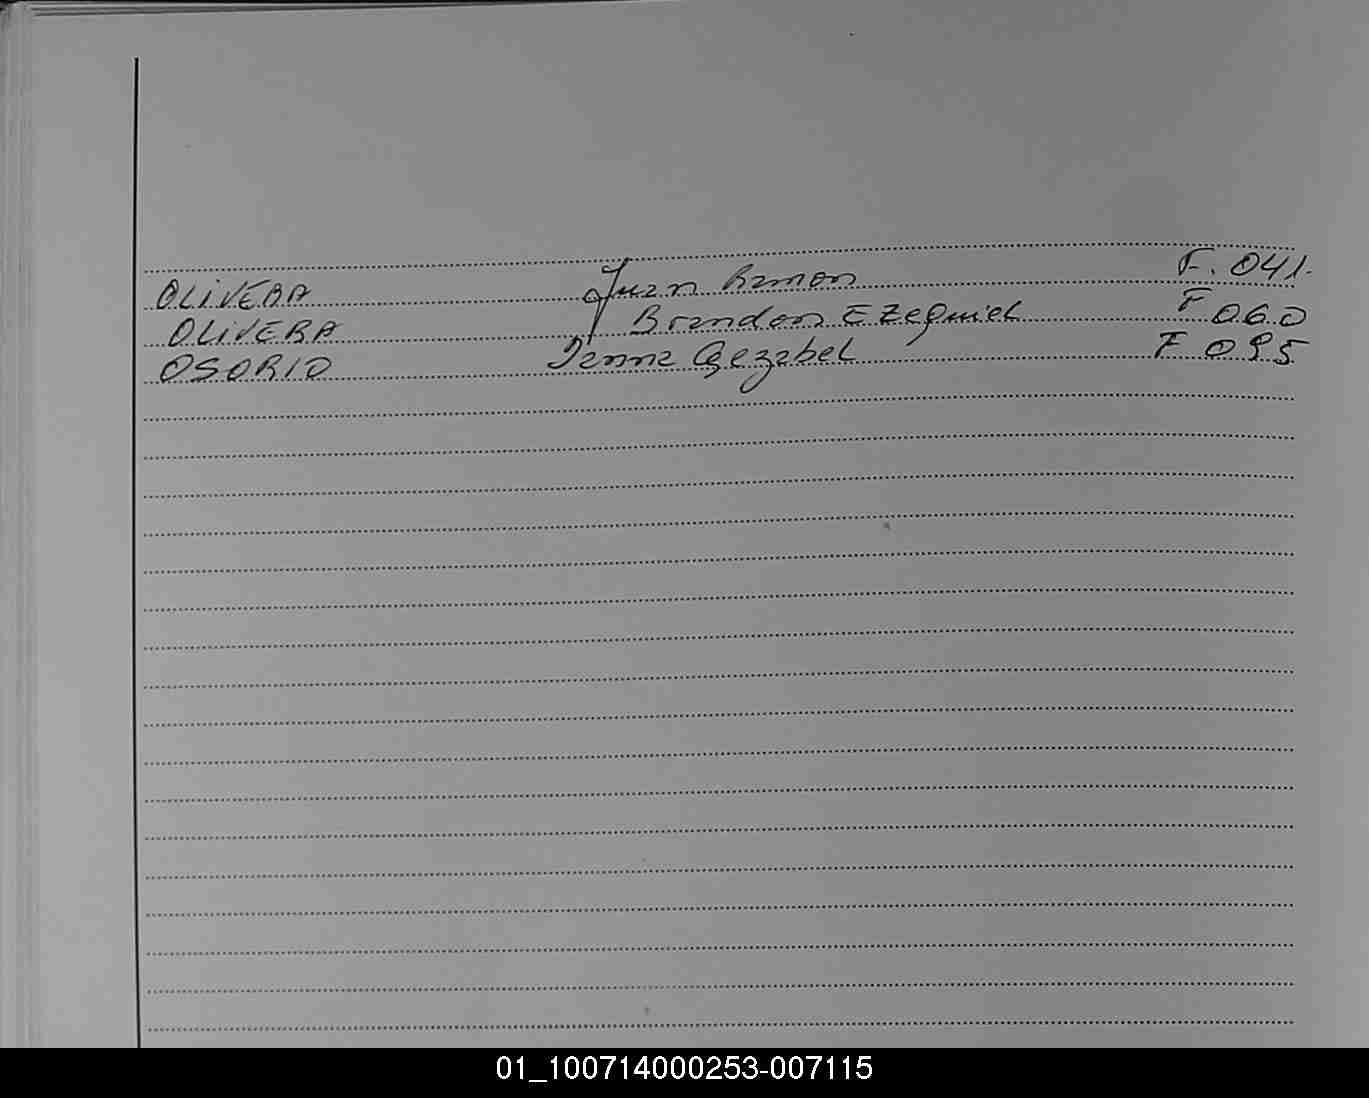 OLIVERA Juan Ramon F. 041.
OLIVERA Brandon Ezequiel F 060
OSORIO F 095
01_100714000253-007115